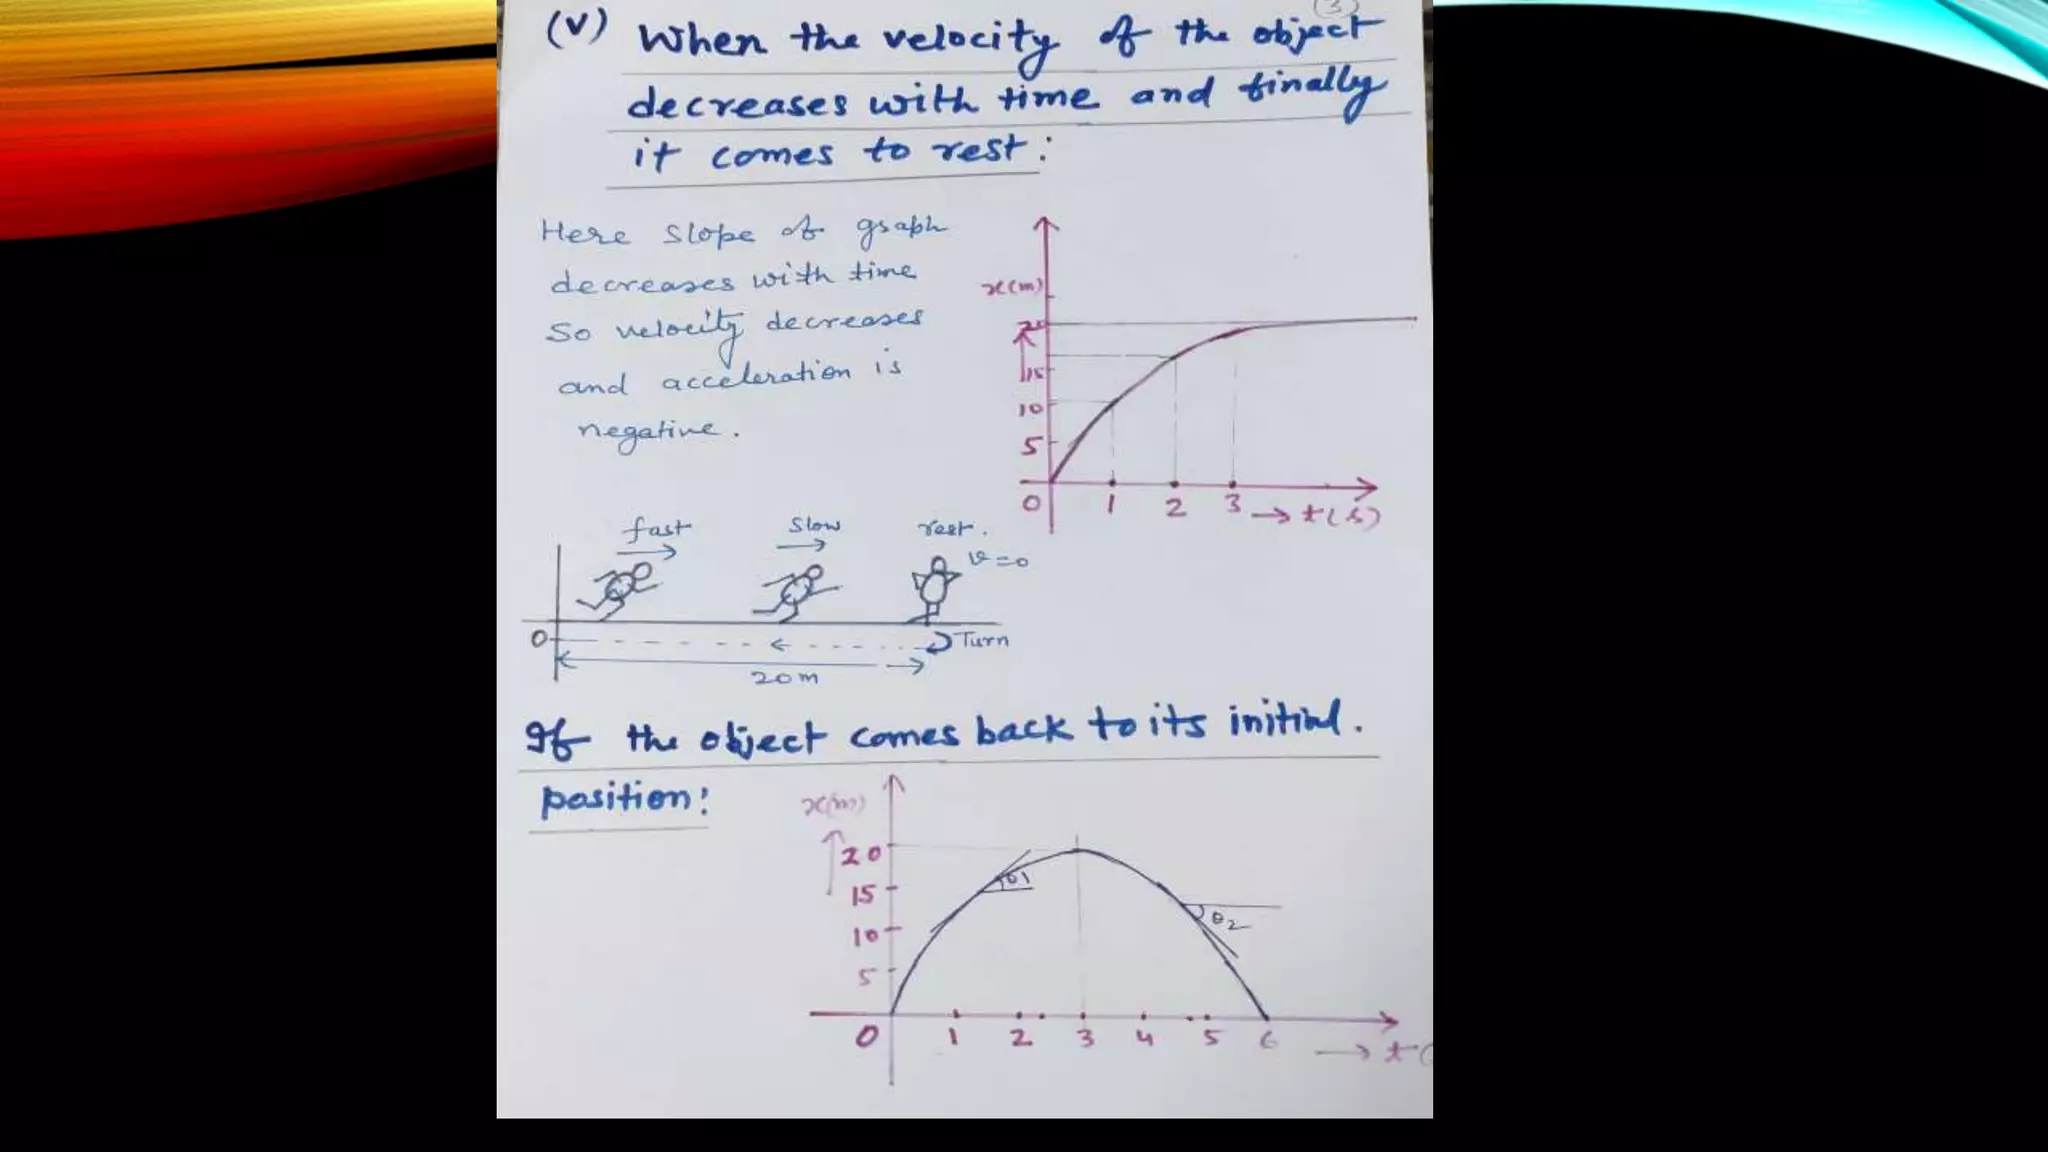 (3)
(V) When the velocity of the object
decreases with time and finally
it comes to rest:
Here slope of graph
decreases with time
So velocity decreases
and acceleration is
negative.
x(m)
20
15
10
5
0 1 2 3 → t(s)
fast slow rest.
v=0
0 Turn
20m
If the object comes back to its initial.
position:
x(m)
20
15
10
5
θ1
θ2
0 1 2 3 4 5 6 → t(